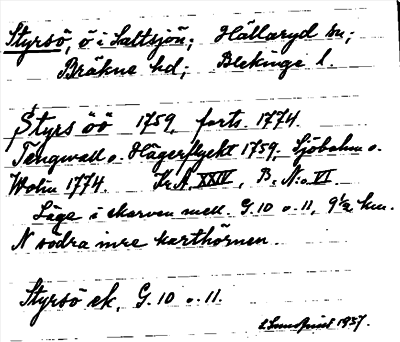 Styrsö, ö i Saltsjön; Hällaryd sn;
Bräkne hd; Blekinge l.
Styrs öö 1759, forts. 1774.
Tengwall o. Hägerflycht 1759, Sjöbohm o.
Wolin 1774. Kr.A. XXIV, B. N:o VI.
Läge i skarven mell. G. 10 o. 11, 9½ km.
N södra inre karthörnen.
Styrsö ek, G. 10 o. 11.
1937.